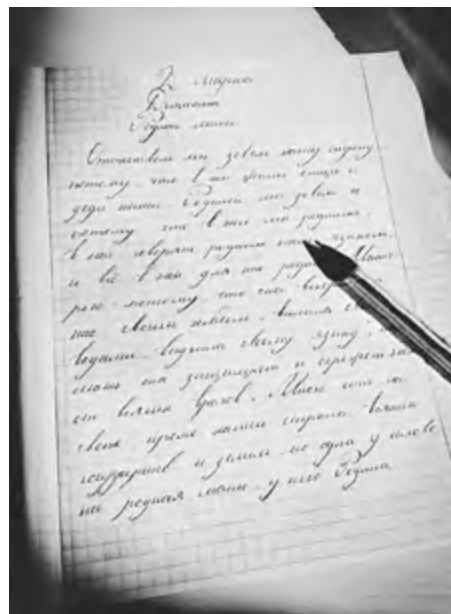 2 марта
Диктант
Родина мать
Отечеством мы зовем нашу страну
потому, что в ней жили отцы и
деды наши. Родиной мы зовем ее
потому что в ней мы родились,
в ней говорят родным нам языком,
и всё в ней для нас родное. Мате-
рью потому что она
нас своим хлебом, вспоила
водами, своему языку, как
мать она защищает и
от всяких врагов. Много есть на
свете кроме нашей страны всяких
государств и земель, но одна у челове
ка родная мать у него Родина